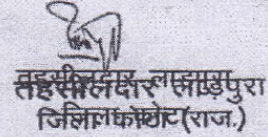 तहसीलदार लाड़पुरा
जिला कोटा (राज.)